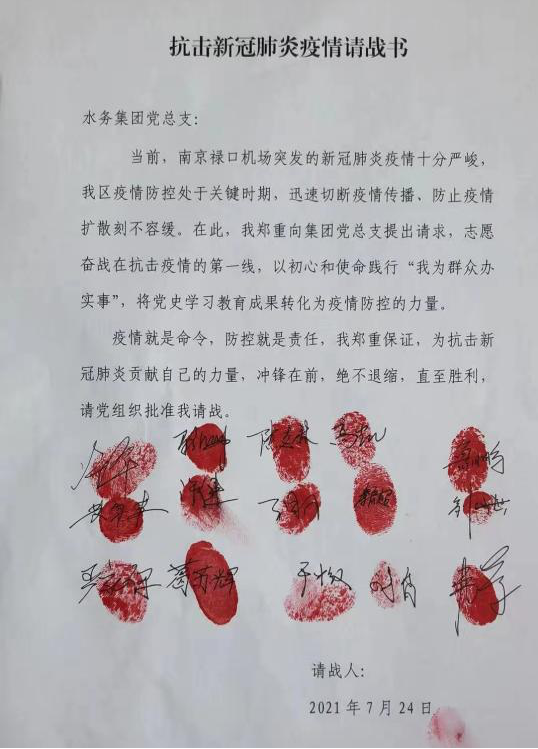 抗击新冠肺炎疫情请战书
水务集团党总支：
当前，南京禄口机场突发的新冠肺炎疫情十分严峻，
我区疫情防控处于关键时期，迅速切断疫情传播、防止疫情
扩散刻不容缓。在此，我郑重向集团党总支提出请求，志愿
奋战在抗击疫情的第一线，以初心和使命践行“我为群众办
实事”，将党史学习教育成果转化为疫情防控的力量。
疫情就是命令，防控就是责任，我郑重保证，为抗击新
冠肺炎贡献自己的力量，冲锋在前，绝不退缩，直至胜利，
请党组织批准我请战。
请战人：
2021年7月24日